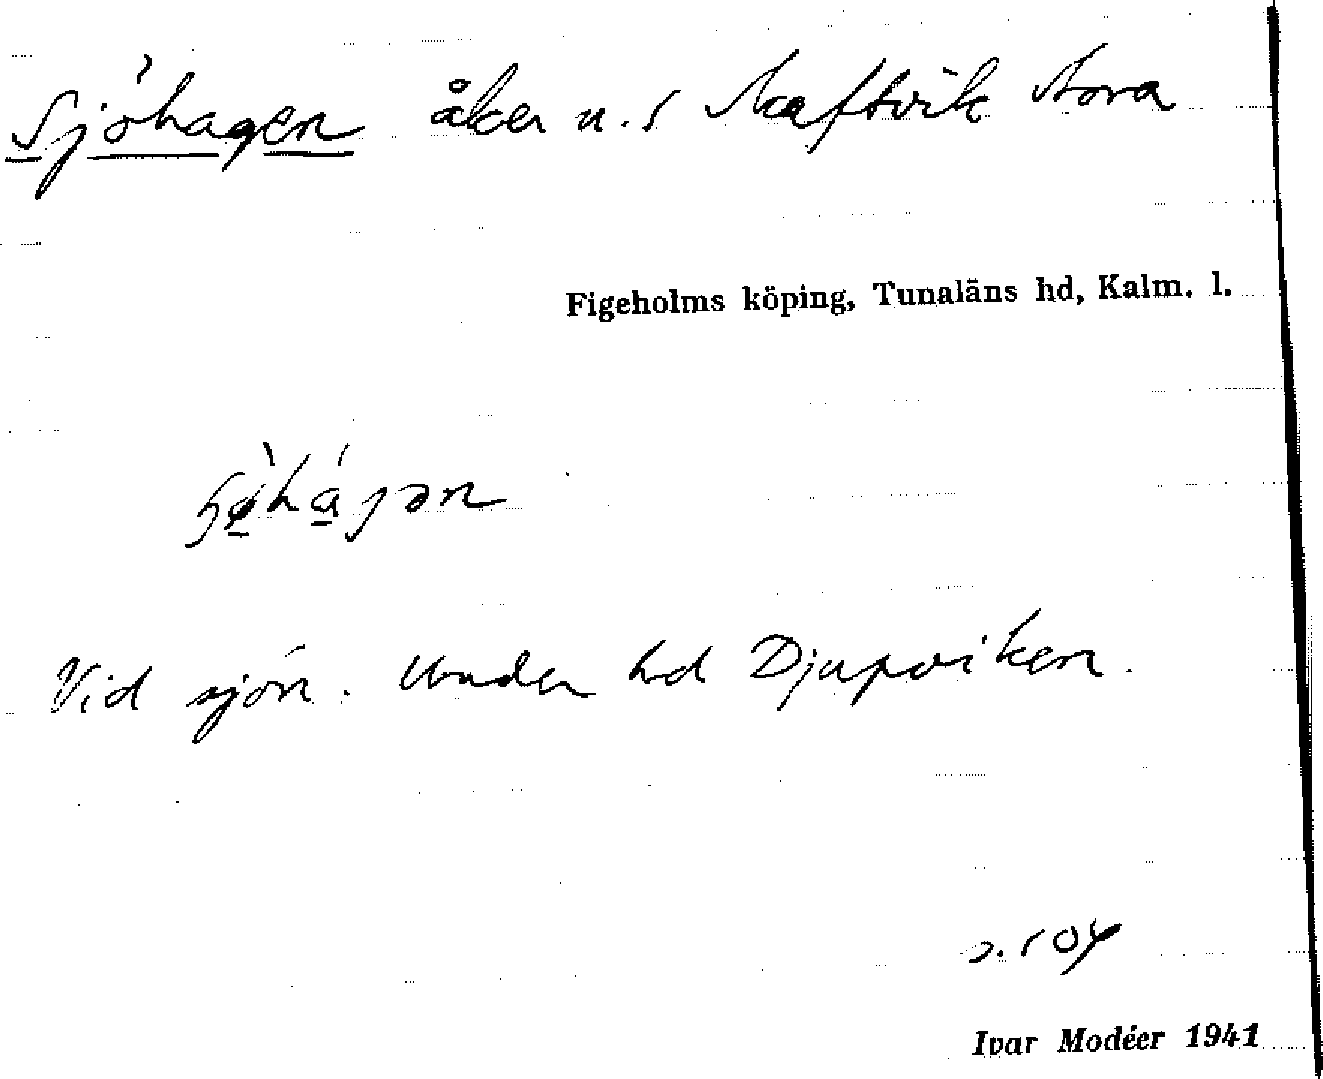 Sjöhagen åker n. 1 Skaftvik Stora
Figeholms köping, Tunaläns hd, Kalm. l.
Vid sjön. Under hd Djupviken.
s. 104
Ivar Modéer 1941